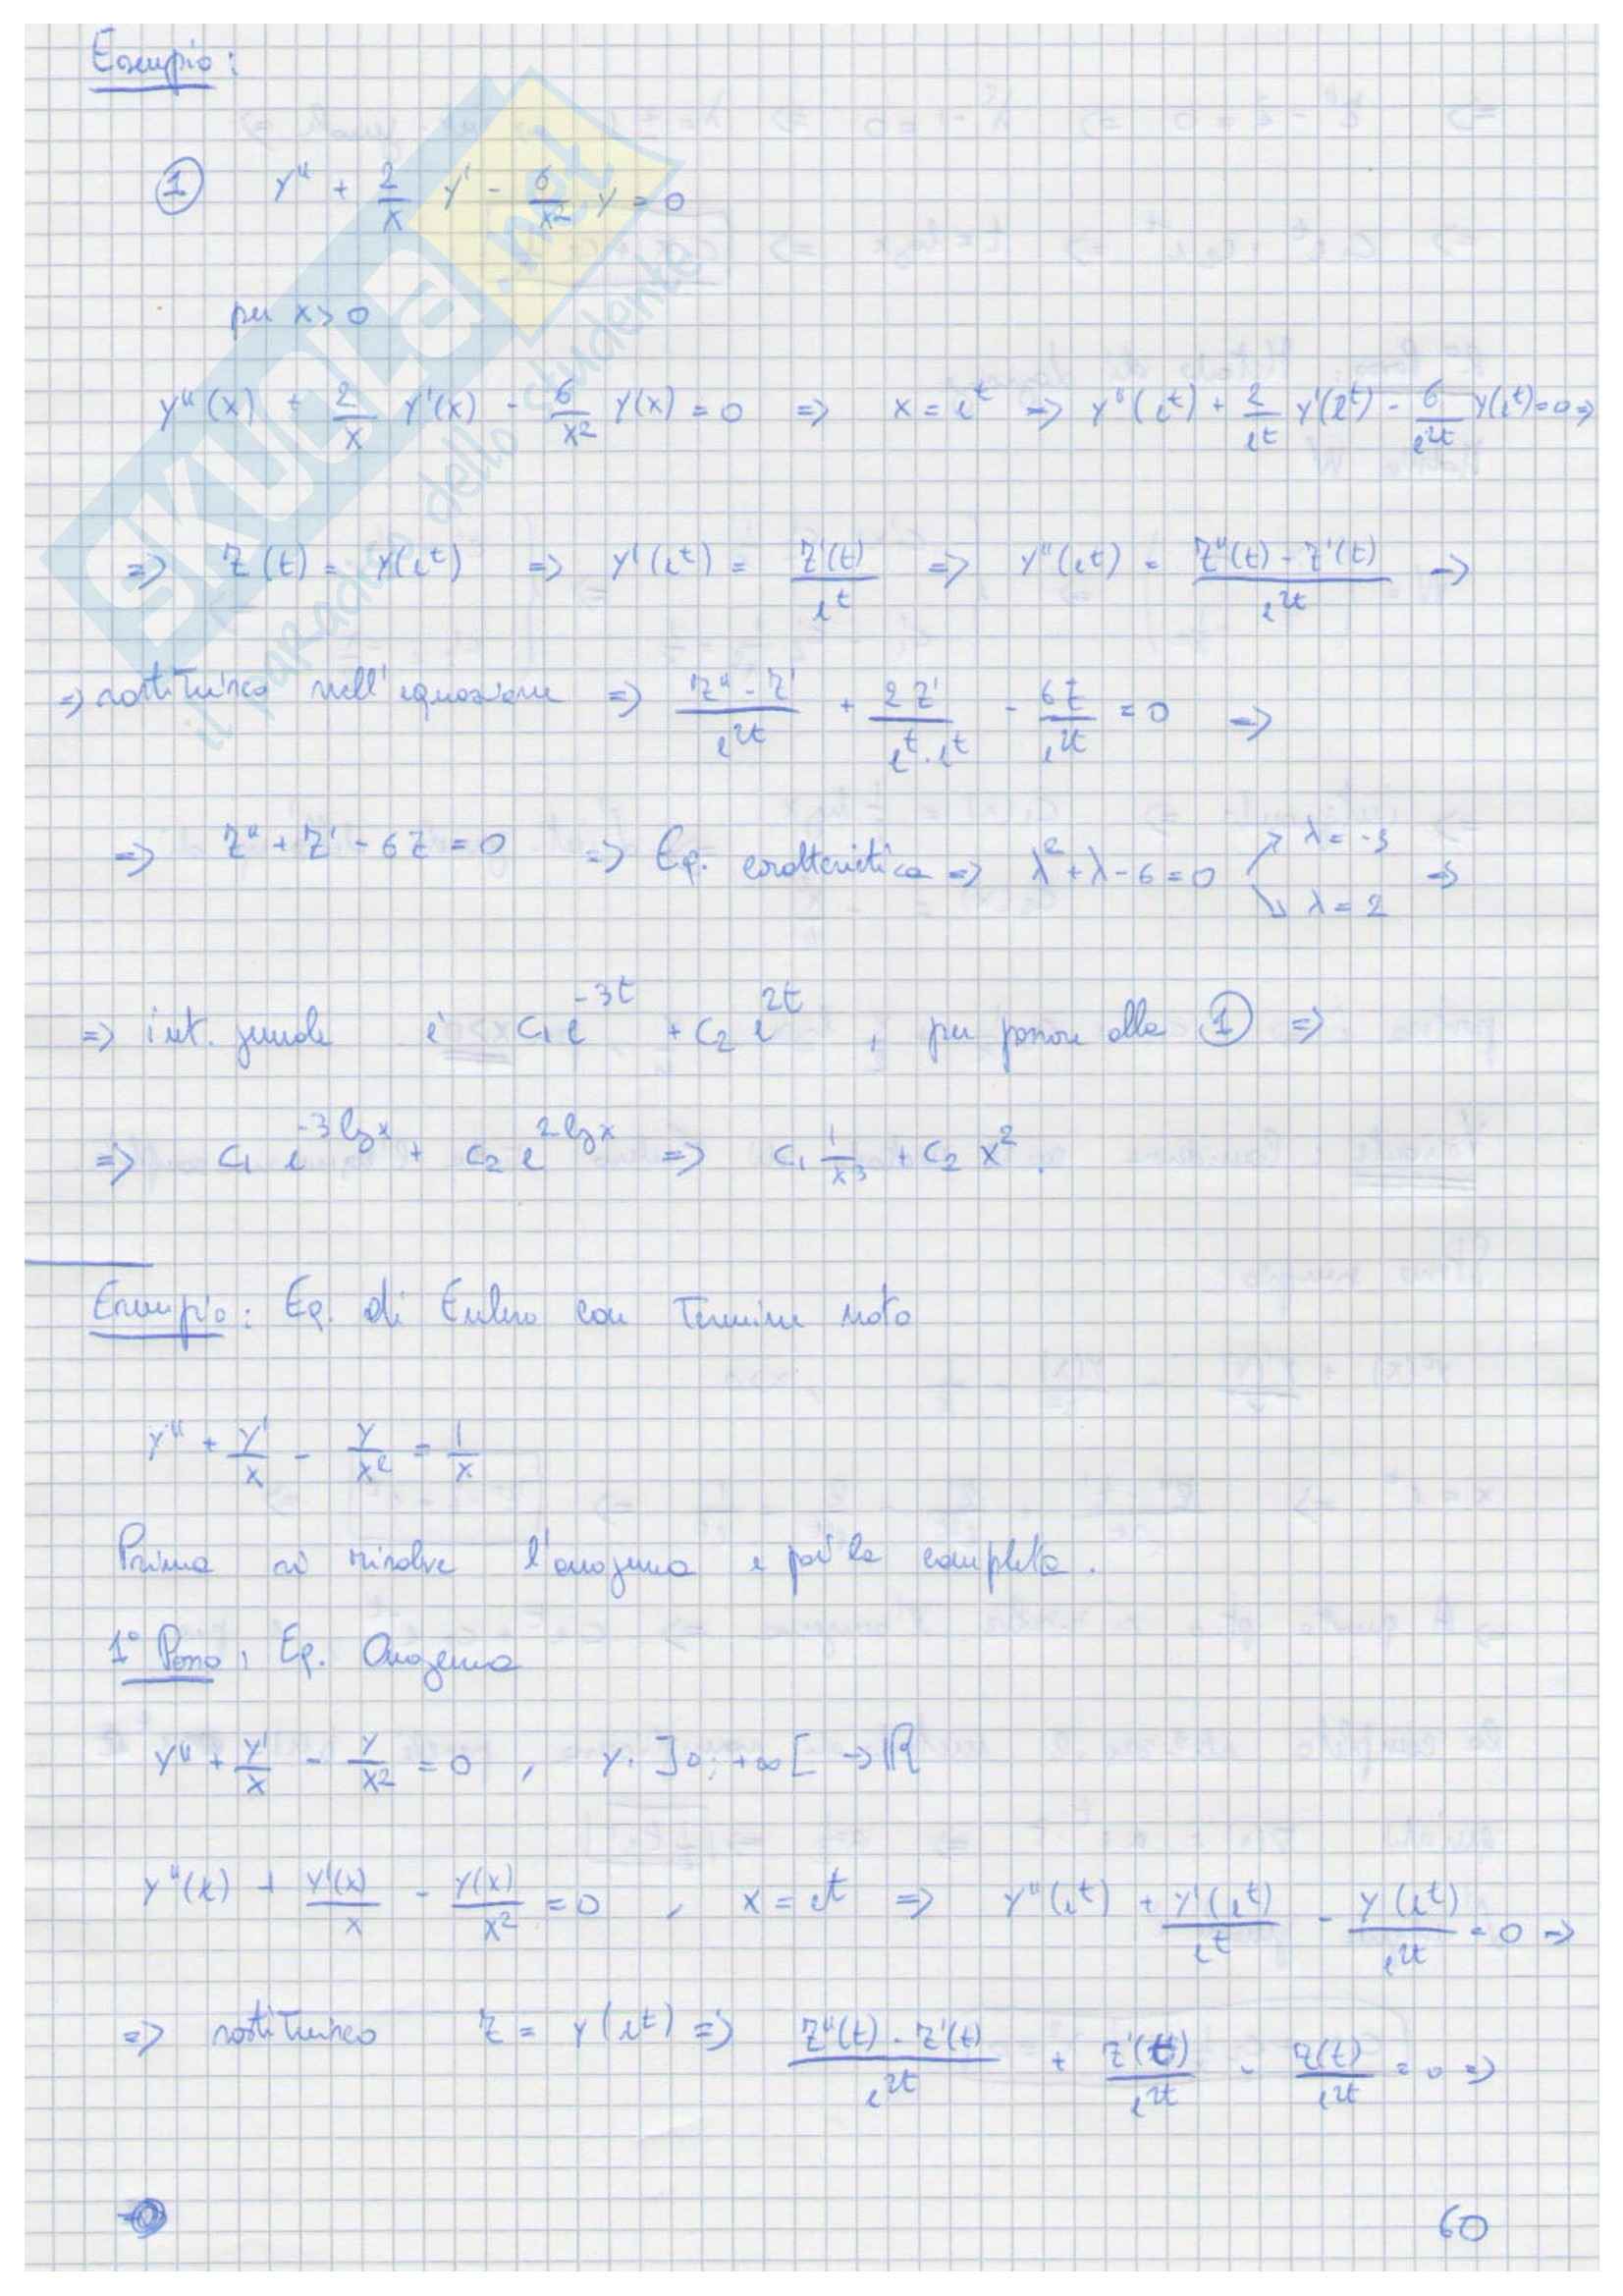 Esempio:
① y'' + 2/x y' - 6/x² y = 0
per x > 0
y''(x) + 2/x y'(x) - 6/x² y(x) = 0 => x = e^t => y''(e^t) + 2/e^t y'(e^t) - 6/e^2t y(e^t) = 0 =>
=> z(t) = y(e^t) => y'(e^t) = z'(t)/e^t => y''(e^t) = (z''(t) - z'(t))/e^2t =>
=> sostituisco nell'equazione => (z'' - z')/e^2t + 2z'/(e^t · e^t) - 6z/e^2t = 0 =>
=> z'' + z' - 6z = 0 => Eq. caratteristica => λ² + λ - 6 = 0 ↗ λ = -3 ↘ λ = 2 =>
=> int. generale è c₁ e^-3t + c₂ e^2t , per passare alla ① =>
=> c₁ e^-3 log x + c₂ e^2 log x => c₁ 1/x³ + c₂ x² .
Esempio: Eq. di Eulero con Termine noto
y'' + y'/x - y/x² = 1/x
Prima si risolve l'omogenea e poi la completa.
1° Passo, Eq. Omogenea
y'' + y'/x - y/x² = 0 , y: ]0; +∞[ → ℝ
y''(x) + y'(x)/x - y(x)/x² = 0 , x = e^t => y''(e^t) + y'(e^t)/e^t - y(e^t)/e^2t = 0 =>
=> sostituisco z = y(e^t) => (z''(t) - z'(t))/e^2t + z'(t)/e^2t - z(t)/e^2t = 0 =>
60
SKUOLA.net
il paradiso dello skudente